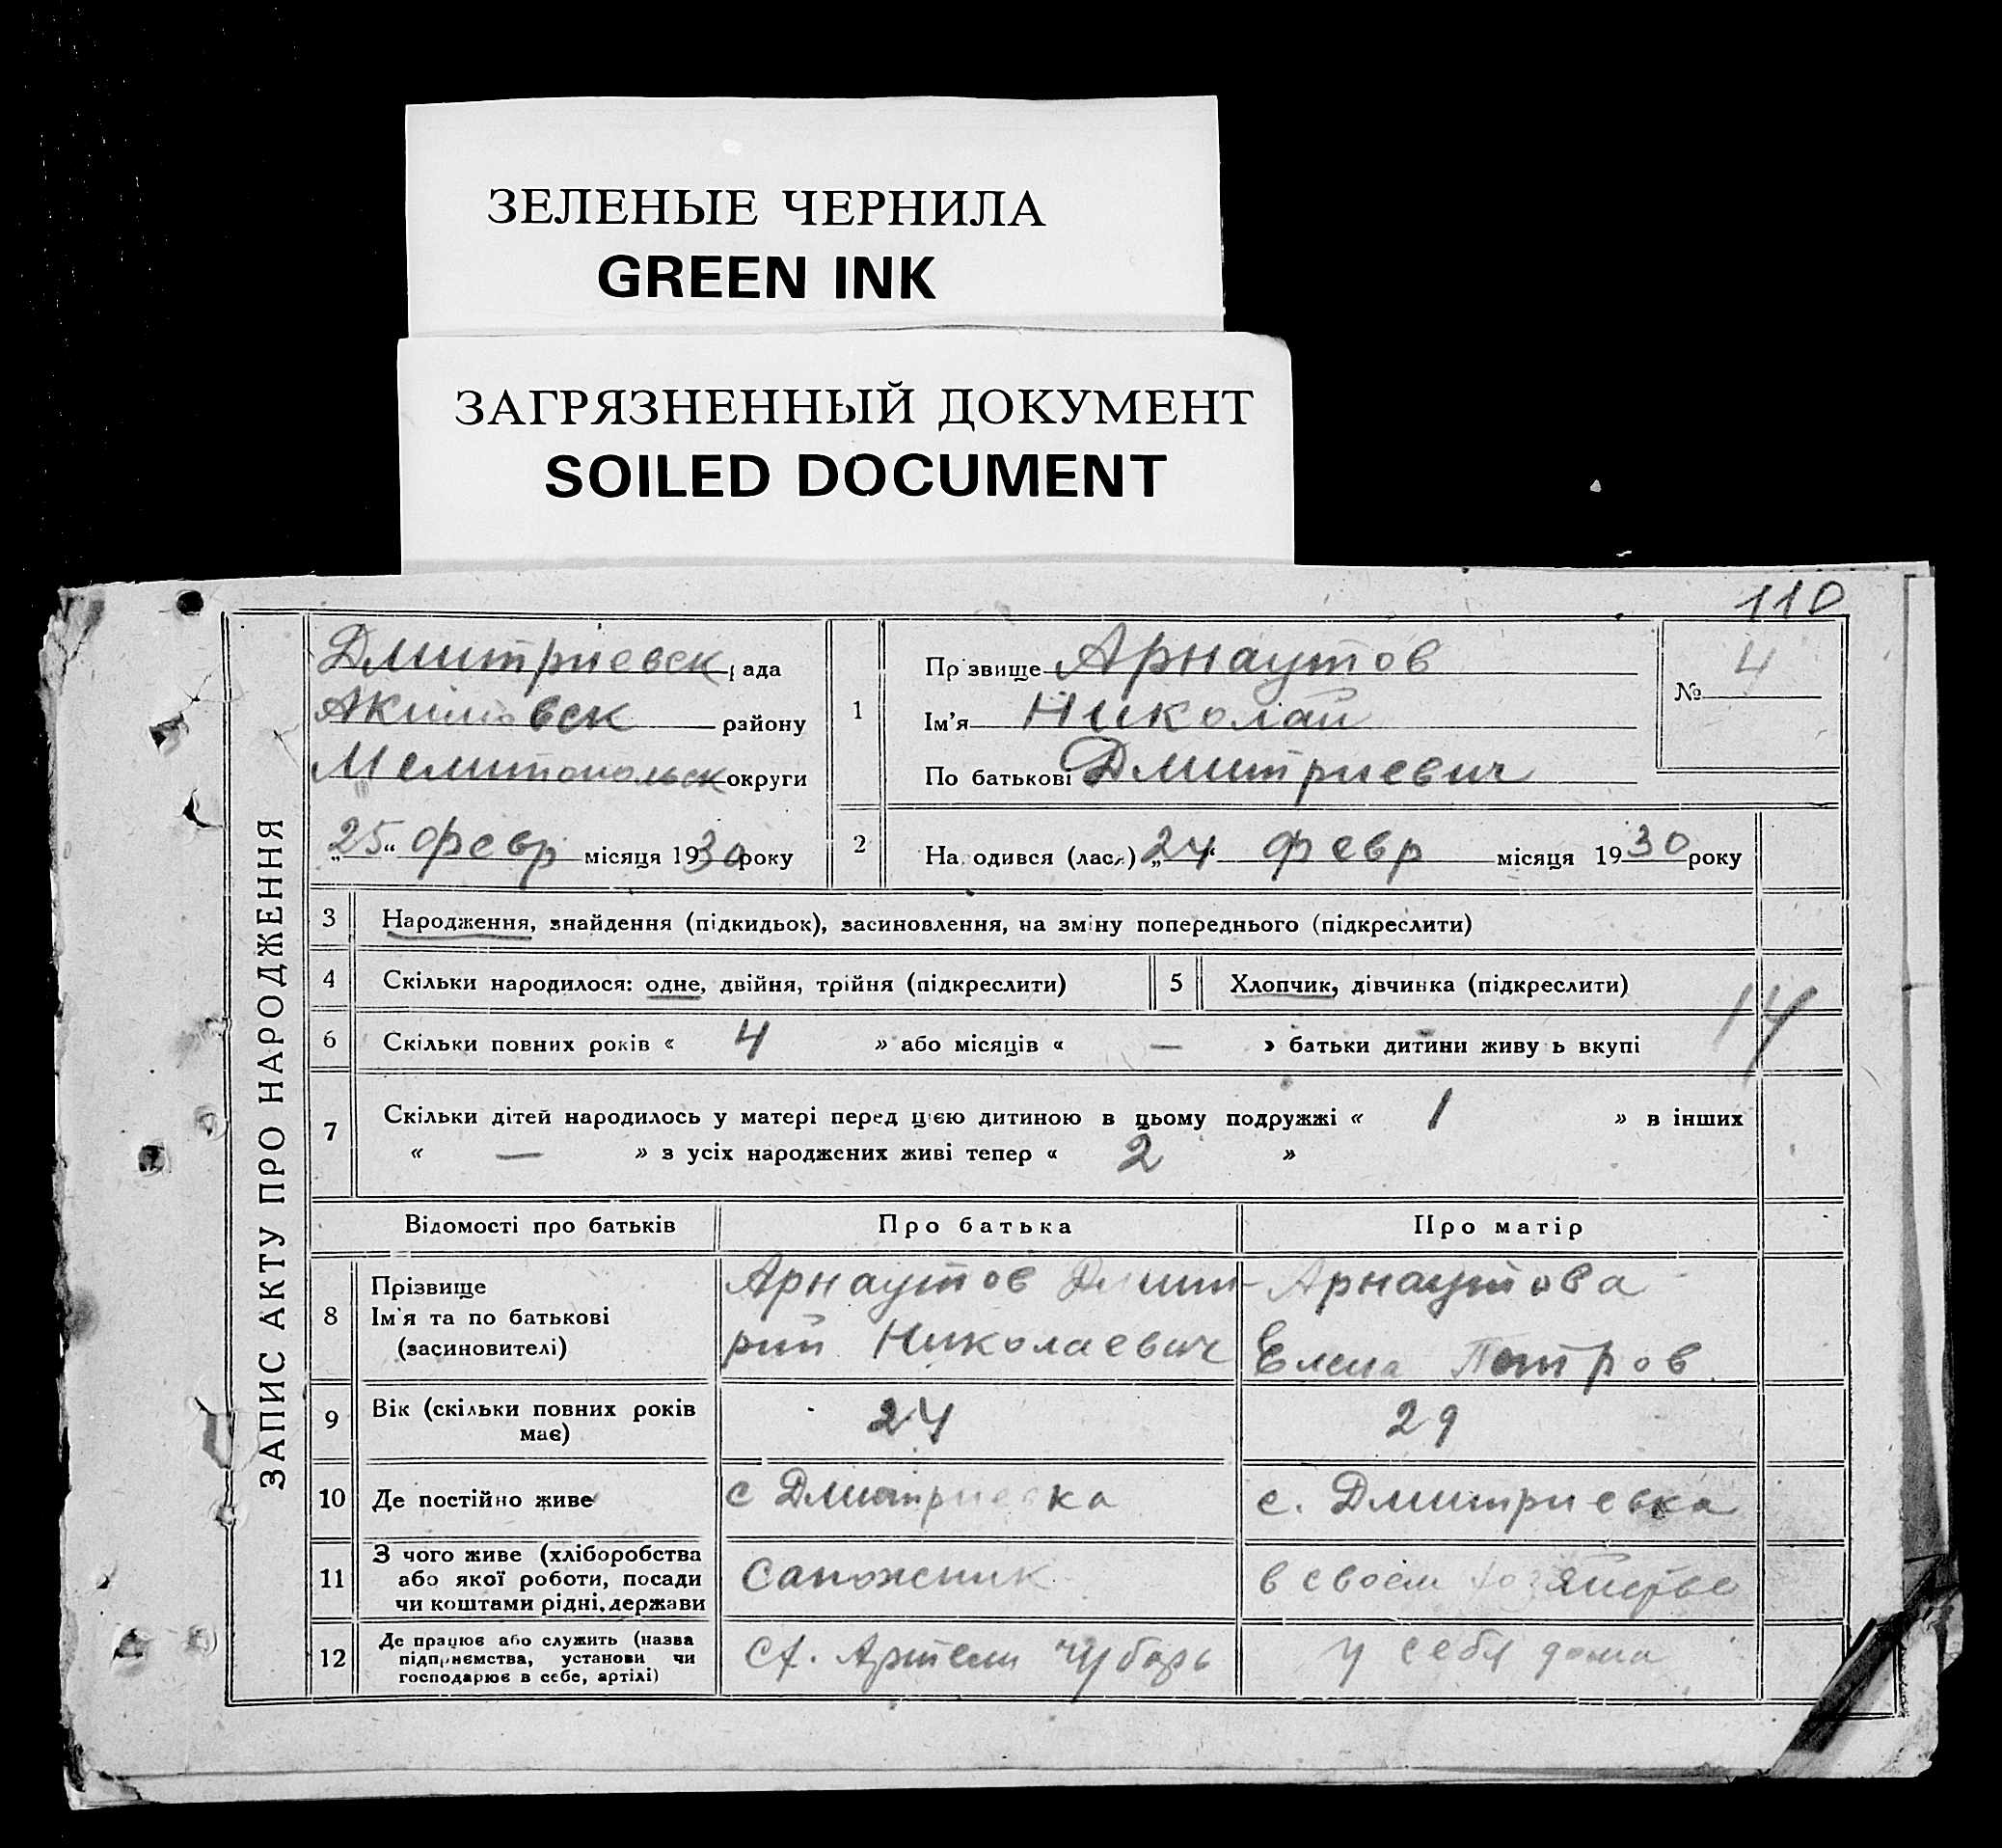 ЗЕЛЕНЫЕ ЧЕРНИЛА
GREEN INK
ЗАГРЯЗНЕННЫЙ ДОКУМЕНТ
SOILED DOCUMENT
110
ЗАПИС АКТУ ПРО НАРОДЖЕННЯ
Дмитриевск рада
Акимовск району
Мелитопольск округи
„25“ февр місяця 1930 року
1
Прізвище Арнаутов
Ім'я Николай
По батькові Дмитриевич
№ 4
2
Народився (лася) „24“ февр місяця 1930 року
3 Народження, знайдення (підкидьок), засиновлення, на зміну попереднього (підкреслити)
4 Скільки народилося: одне, двійня, трійня (підкреслити)
5 Хлопчик, дівчинка (підкреслити)
6 Скільки повних років « 4 » або місяців « — » батьки дитини живуть вкупі
14
7 Скільки дітей народилось у матері перед цією дитиною в цьому подружжі « 1 » в інших
« — » з усіх народжених живі тепер « 2 »
Відомості про батьків Про батька Про матір
8 Прізвище
Ім'я та по батькові
(засиновителі)
Арнаутов Дмит-
рий Николаевич
Арнаутова
Елена Петров
9 Вік (скільки повних років
має)
24
29
10 Де постійно живе
с Дмитриевка
с. Дмитриевка
11 З чого живе (хліборобства
або якої роботи, посади
чи коштами рідні, держави
сапожник
в своем хозяйстве
12 Де працює або служить (назва
підприємства, установи чи
господарює в себе, артілі)
Артели Чубарь
у себя дома